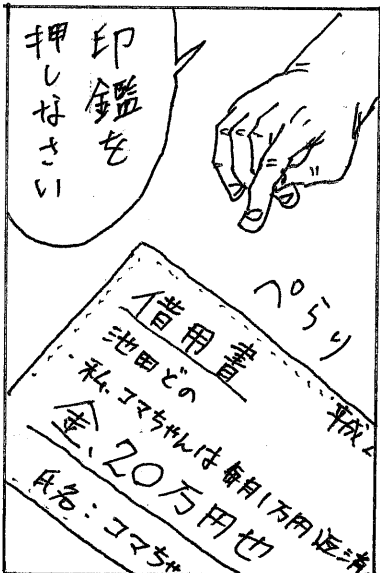 印鑑を
押しなさい
ぺらり
借用書
平成
池田どの
私、コマちゃんは毎月1万円返済
金、20万円也
氏名：コマちゃ